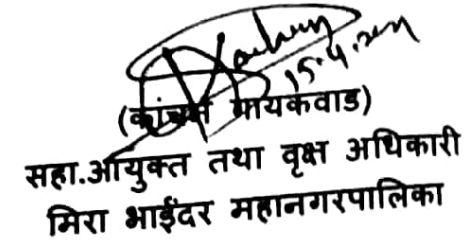 15.4.2021
(कांचन गायकवाड)
सहा.आयुक्त तथा वृक्ष अधिकारी
मिरा भाईंदर महानगरपालिका